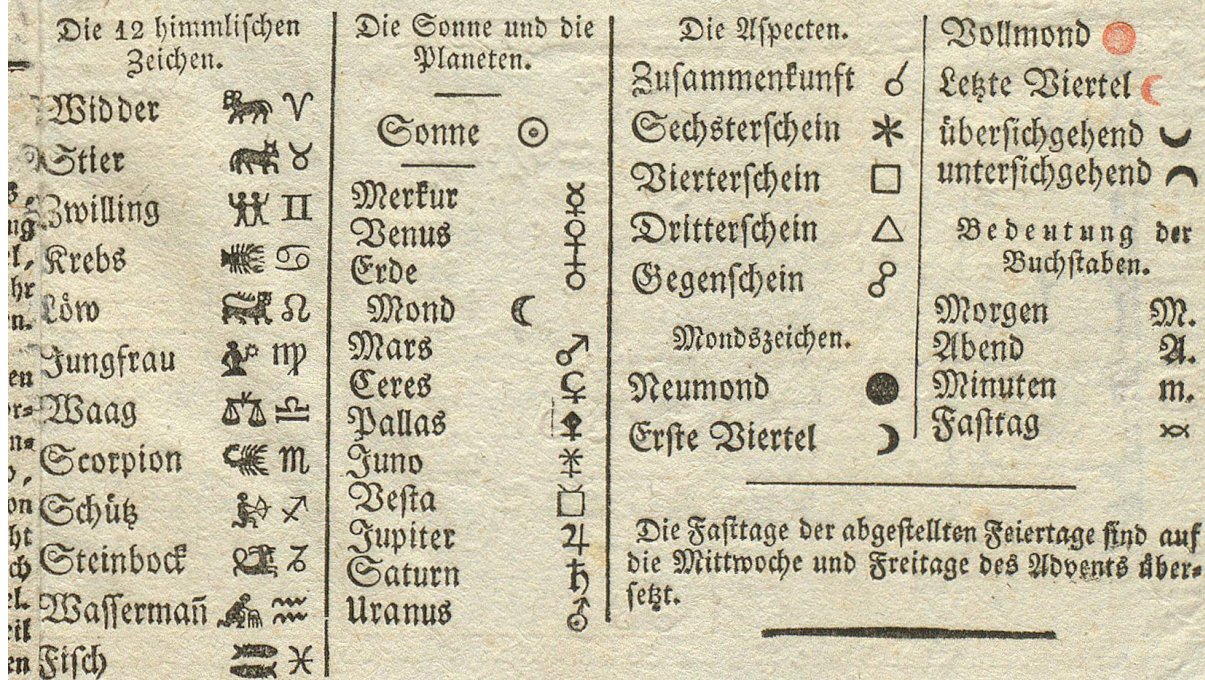 Die 12 himmlischen
Zeichen.
Widder ♈
Stier ♉
Zwilling ♊
Krebs ♋
Löw ♌
Jungfrau ♍
Waag ♎
Scorpion ♏
Schütz ♐
Steinbock ♑
Wassermañ ♒
Fisch ♓
Die Sonne und die
Planeten.
Sonne ☉
Merkur ☿
Venus ♀
Erde ♁
Mond ☾
Mars ♂
Ceres ⚳
Pallas ⚴
Juno ⚵
Vesta ⚶
Jupiter ♃
Saturn ♄
Uranus ⛢
Die Aspecten.
Zusammenkunft ☌
Sechsterschein ⚹
Vierterschein □
Dritterschein △
Gegenschein ☍
Mondszeichen.
Neumond ●
Erste Viertel ☽
Vollmond
Letzte Viertel ☾
übersichgehend
untersichgehend
Bedeutung der
Buchstaben.
Morgen M.
Abend A.
Minuten m.
Fasttag
Die Fasttage der abgestellten Feiertage sind auf
die Mittwoche und Freitage des Advents über-
setzt.